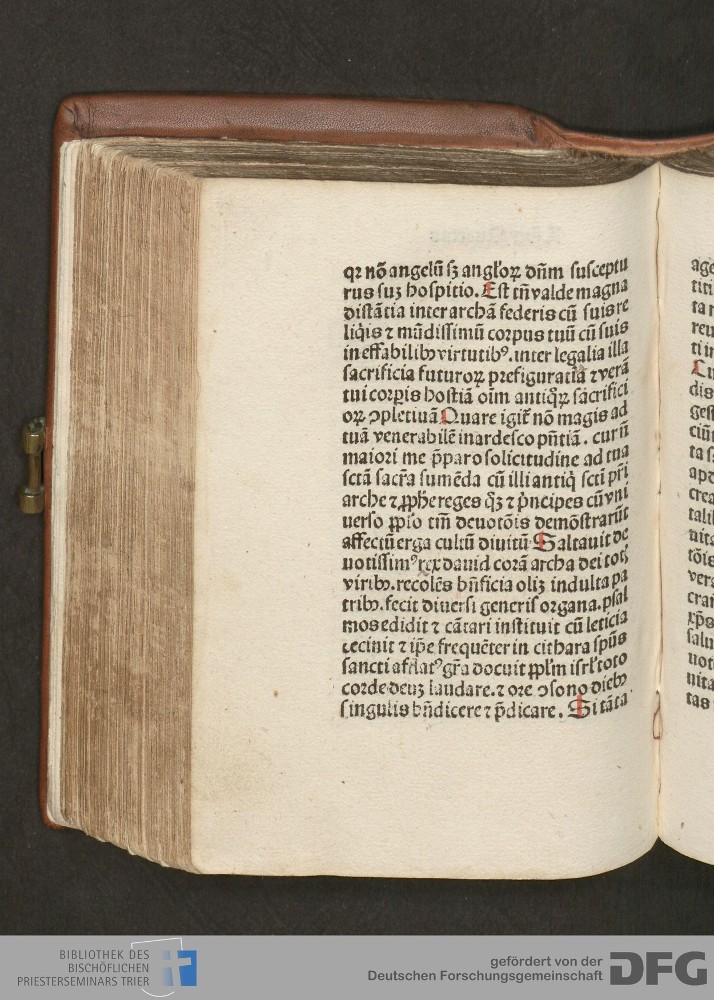 qꝛ nō angelū sꝫ angl'oꝝ dn̄m susceptu
rus suꝫ hospitio. Est tn̄ valde magna
distātia inter archā federis cū suis re
liq̇is ⁊ mūdissimū corpus tuū cū suis
ineffabilibꝰ virtutibꝰ. inter legalia illa
sacrificia futuroꝝ prefiguratiā ⁊ verā
tui corꝑis hostiā oīm antiq̄ꝝ sacrifici
oꝝ ↄpletiuā Quare igit̄ nō magis ad
tuā venerabilē inardesco pn̄tiā. cur nō
maiori me p̄paro solicitudine ad tua
sctā sacr̄a sumēda cū illi antiq̇ sctī pr̄i
arche ⁊ ꝓphe reges q̄ꝫ ⁊ pⁱncipes cū vni
uerso pplo tm̄ deuotōis demōstrarūt
affectū erga cultū diuinū Saltauit de
uotissimꝰ rex dauid corā archa dei totꝭ
viribꝰ. recolēs bn̄ficia olīꝫ indulta pa
tribꝰ. fecit diuersi generis organa. psal
mos edidit ⁊ cātari instituit cū leticia
cecinit ⁊ ip̄e frequēter in cithara spūs
sancti afflatꝰ gr̄a docuit ppl'm isrl' toto
corde deuꝫ laudare. ⁊ ore ↄsono diebꝰ
singulis bn̄dicere ⁊ p̄dicare. Si tāta
age
titi
ta
reu
ti
Cu
dis
gest
ciū
ta
apo
crea
talit
uita
tōis
vera
crar
xp̄s
salu
uot
uita
tas
BIBLIOTHEK DES
BISCHÖFLICHEN
PRIESTERSEMINARS TRIER
gefördert von der
Deutschen Forschungsgemeinschaft
DFG